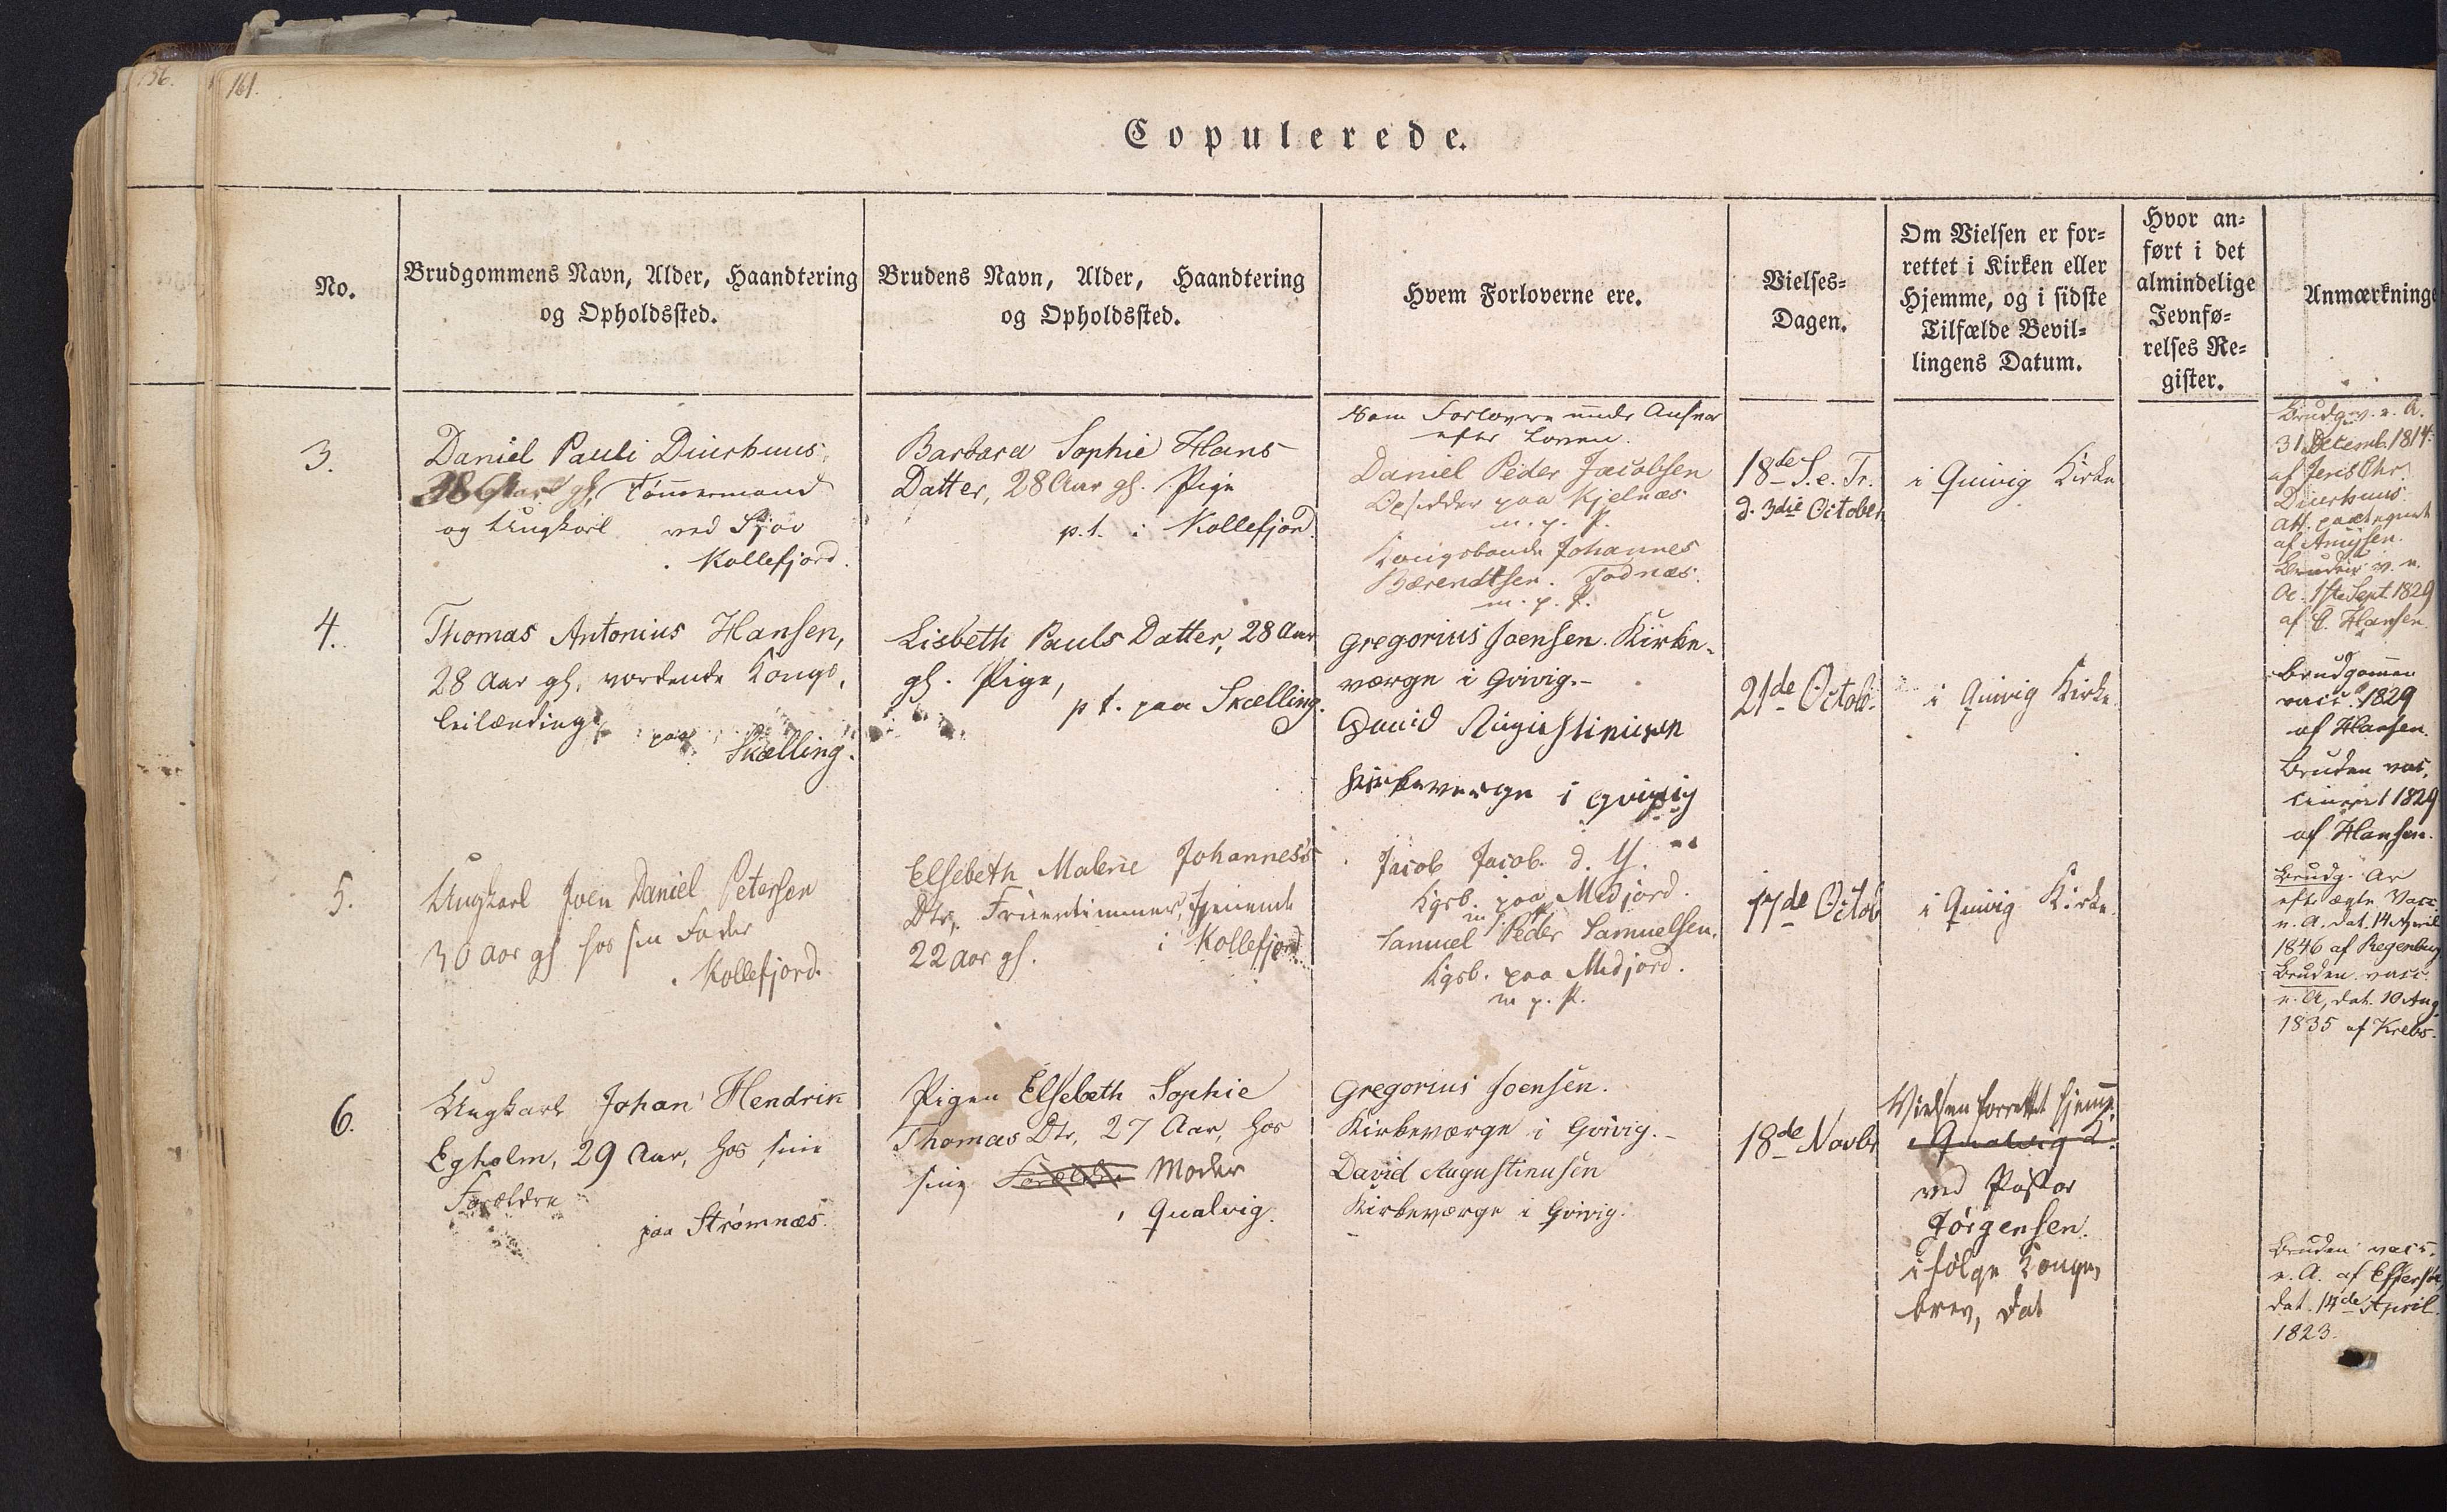 56.
161.
Copulerede.
No.
Brudgommens Navn, Alder, Haandtering
og Opholdssted.
Brudens Navn, Alder, Haandtering
og Opholdssted.
Hvem Forloverne ere.
Vielses-
Dagen.
Om Vielsen er for-
rettet i Kirken eller
Hjemme, og i sidste
Tilfælde Bevil-
lingens Datum.
Hvor an-
ført i det
almindelige
Jevnfø-
relses Re-
gister.
Anmærkninge
3.
Daniel Pauli Diurhuus,
38 gl, Tömmermand
og Ungkarl ved Sjov
Kollefjord.
Barbara Sophie Hans
Datter, 28 Aar gl. Pige
p.t. i Kollefjord.
Som Forlovere under Ansvar
efter Loven.
Daniel Peder Jacobsen
Opsidder paa Kjelnæs
m. p. P.
Kongsbonde Johannes
Bærendtsen. Todnæs.
m. p. P.
18de S. e. Tr.
d. 3die October
i Quivig Kirke
Brudg. v. e. A.
31 Decemb. 1814
af Jens Chr.
Diurhuus
Att. paategnet
af
Bruden v. e.
A. 1ste Sept. 1829
af C. Hansen.
4.
Thomas Antonius Hansen,
28 Aar gl, vordende Kongs,
leilænding, paa
Skælling.
Lisbeth Pauls Datter, 28 Aar
gl. Pige,
p t. paa Skælling.
Gregorius Joensen. Kirke-
værge i Qvivig.-
David Augustinusen
Kirkeverge i Qvivig
21de Octob.
i Quivig Kirke.
Brudgommen
vacc. 1829
af Hansen.
Bruden vac,
cineret 1829
af Hansen.
5.
Ungkarl Joen Daniel Petersen
30 Aar gl hos sin Fader
i Kollefjord.
Elsebeth Malene Johannes
Dtr, Fruentimmer, tjenende
22 Aar gl. i Kollefjord
Jacob Jacob. d. Y.
Kgsb. paa Medjord.
m p P
Samuel Peder Samuelsen.
Kgsb. paa Medjord.
m p. P.
17de Octob
i Quivig Kirke.
Brudg. Ar
efter ægte Vacc.
e. A. dat. 14 April
1846 af Regenburg
Bruden vacc.
e. A, dat. 10 Aug.
1835 af Krebs.
6.
Ungkarl Johan Hendrik
Egholm, 29 Aar, hos sine
Forældre
paa Strømnæs.
Pigen Elsebeth Sophie
Thomas Dtr, 27 Aar, hos
sine Forældre Moder
i Qualvig.
Gregorius Joensen.
Kirkeværge i Qvivig.-
David Augustinusen
Kirkeværge i Qvivig.
18de Novbr
Vielsen forrettet hjemme.
i Qualvig K.
ved Pastor
Jörgensen.
ifölge Konge,
brev, dat
Bruden vacc.
e. A. af Effersöe,
dat. 14de April
1823.